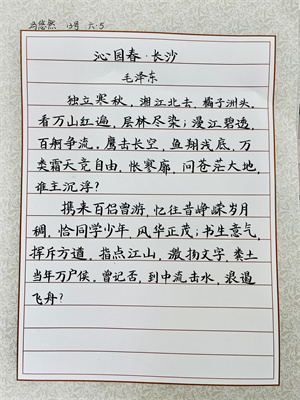 马悠然 13号 六.5
沁园春·长沙
毛泽东
独立寒秋，湘江北去，橘子洲头，
看万山红遍，层林尽染；漫江碧透，
百舸争流，鹰击长空，鱼翔浅底，万
类霜天竞自由，怅寥廓，问苍茫大地，
谁主沉浮？
携来百侣曾游，忆往昔峥嵘岁月
稠，恰同学少年，风华正茂；书生意气，
挥斥方遒，指点江山，激扬文字，粪土
当年万户侯，曾记否，到中流击水，浪遏
飞舟？